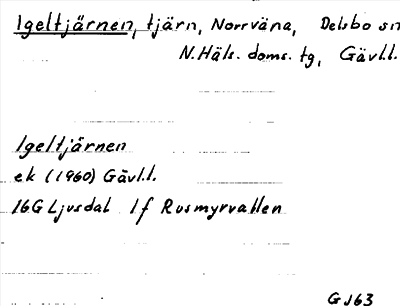 Igeltjärnen, tjärn, Norrväna, Delsbo sn
N.Häls. doms. tg, Gävl.l.
Igeltjärnen
ek (1960) Gävl.l.
16G Ljusdal 1f Rusmyrvallen
GJ63